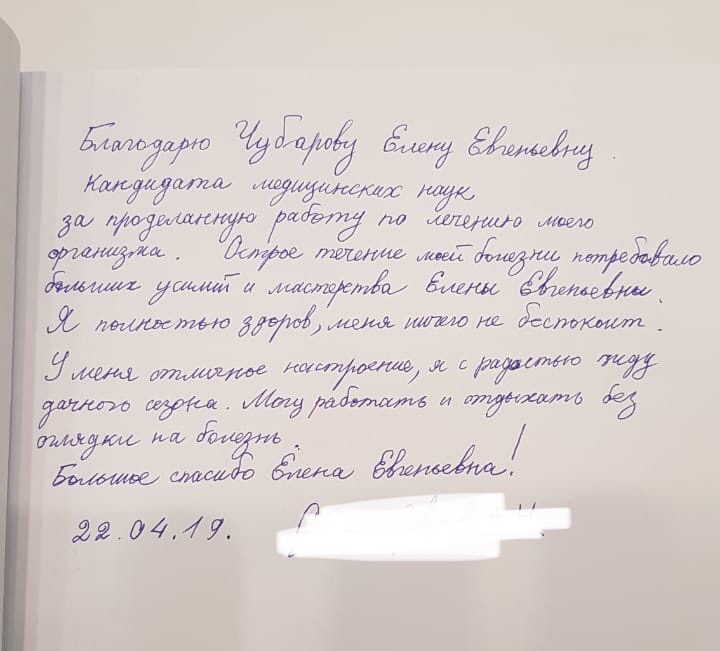 Благодарю Чубарову Елену Евгеньевну.
Кандидата медицинских наук
за проделанную работу по лечению моего
организма. Острое течение моей болезни потребовало
больших усилий и мастерства Елены Евгеньевны.
Я полностью здоров, меня ничего не беспокоит.
У меня отличное настроение, я с радостью жду
дачного сезона. Могу работать и отдыхать без
оглядки на болезнь.
Большое спасибо Елена Евгеньевна!
22.04.19.